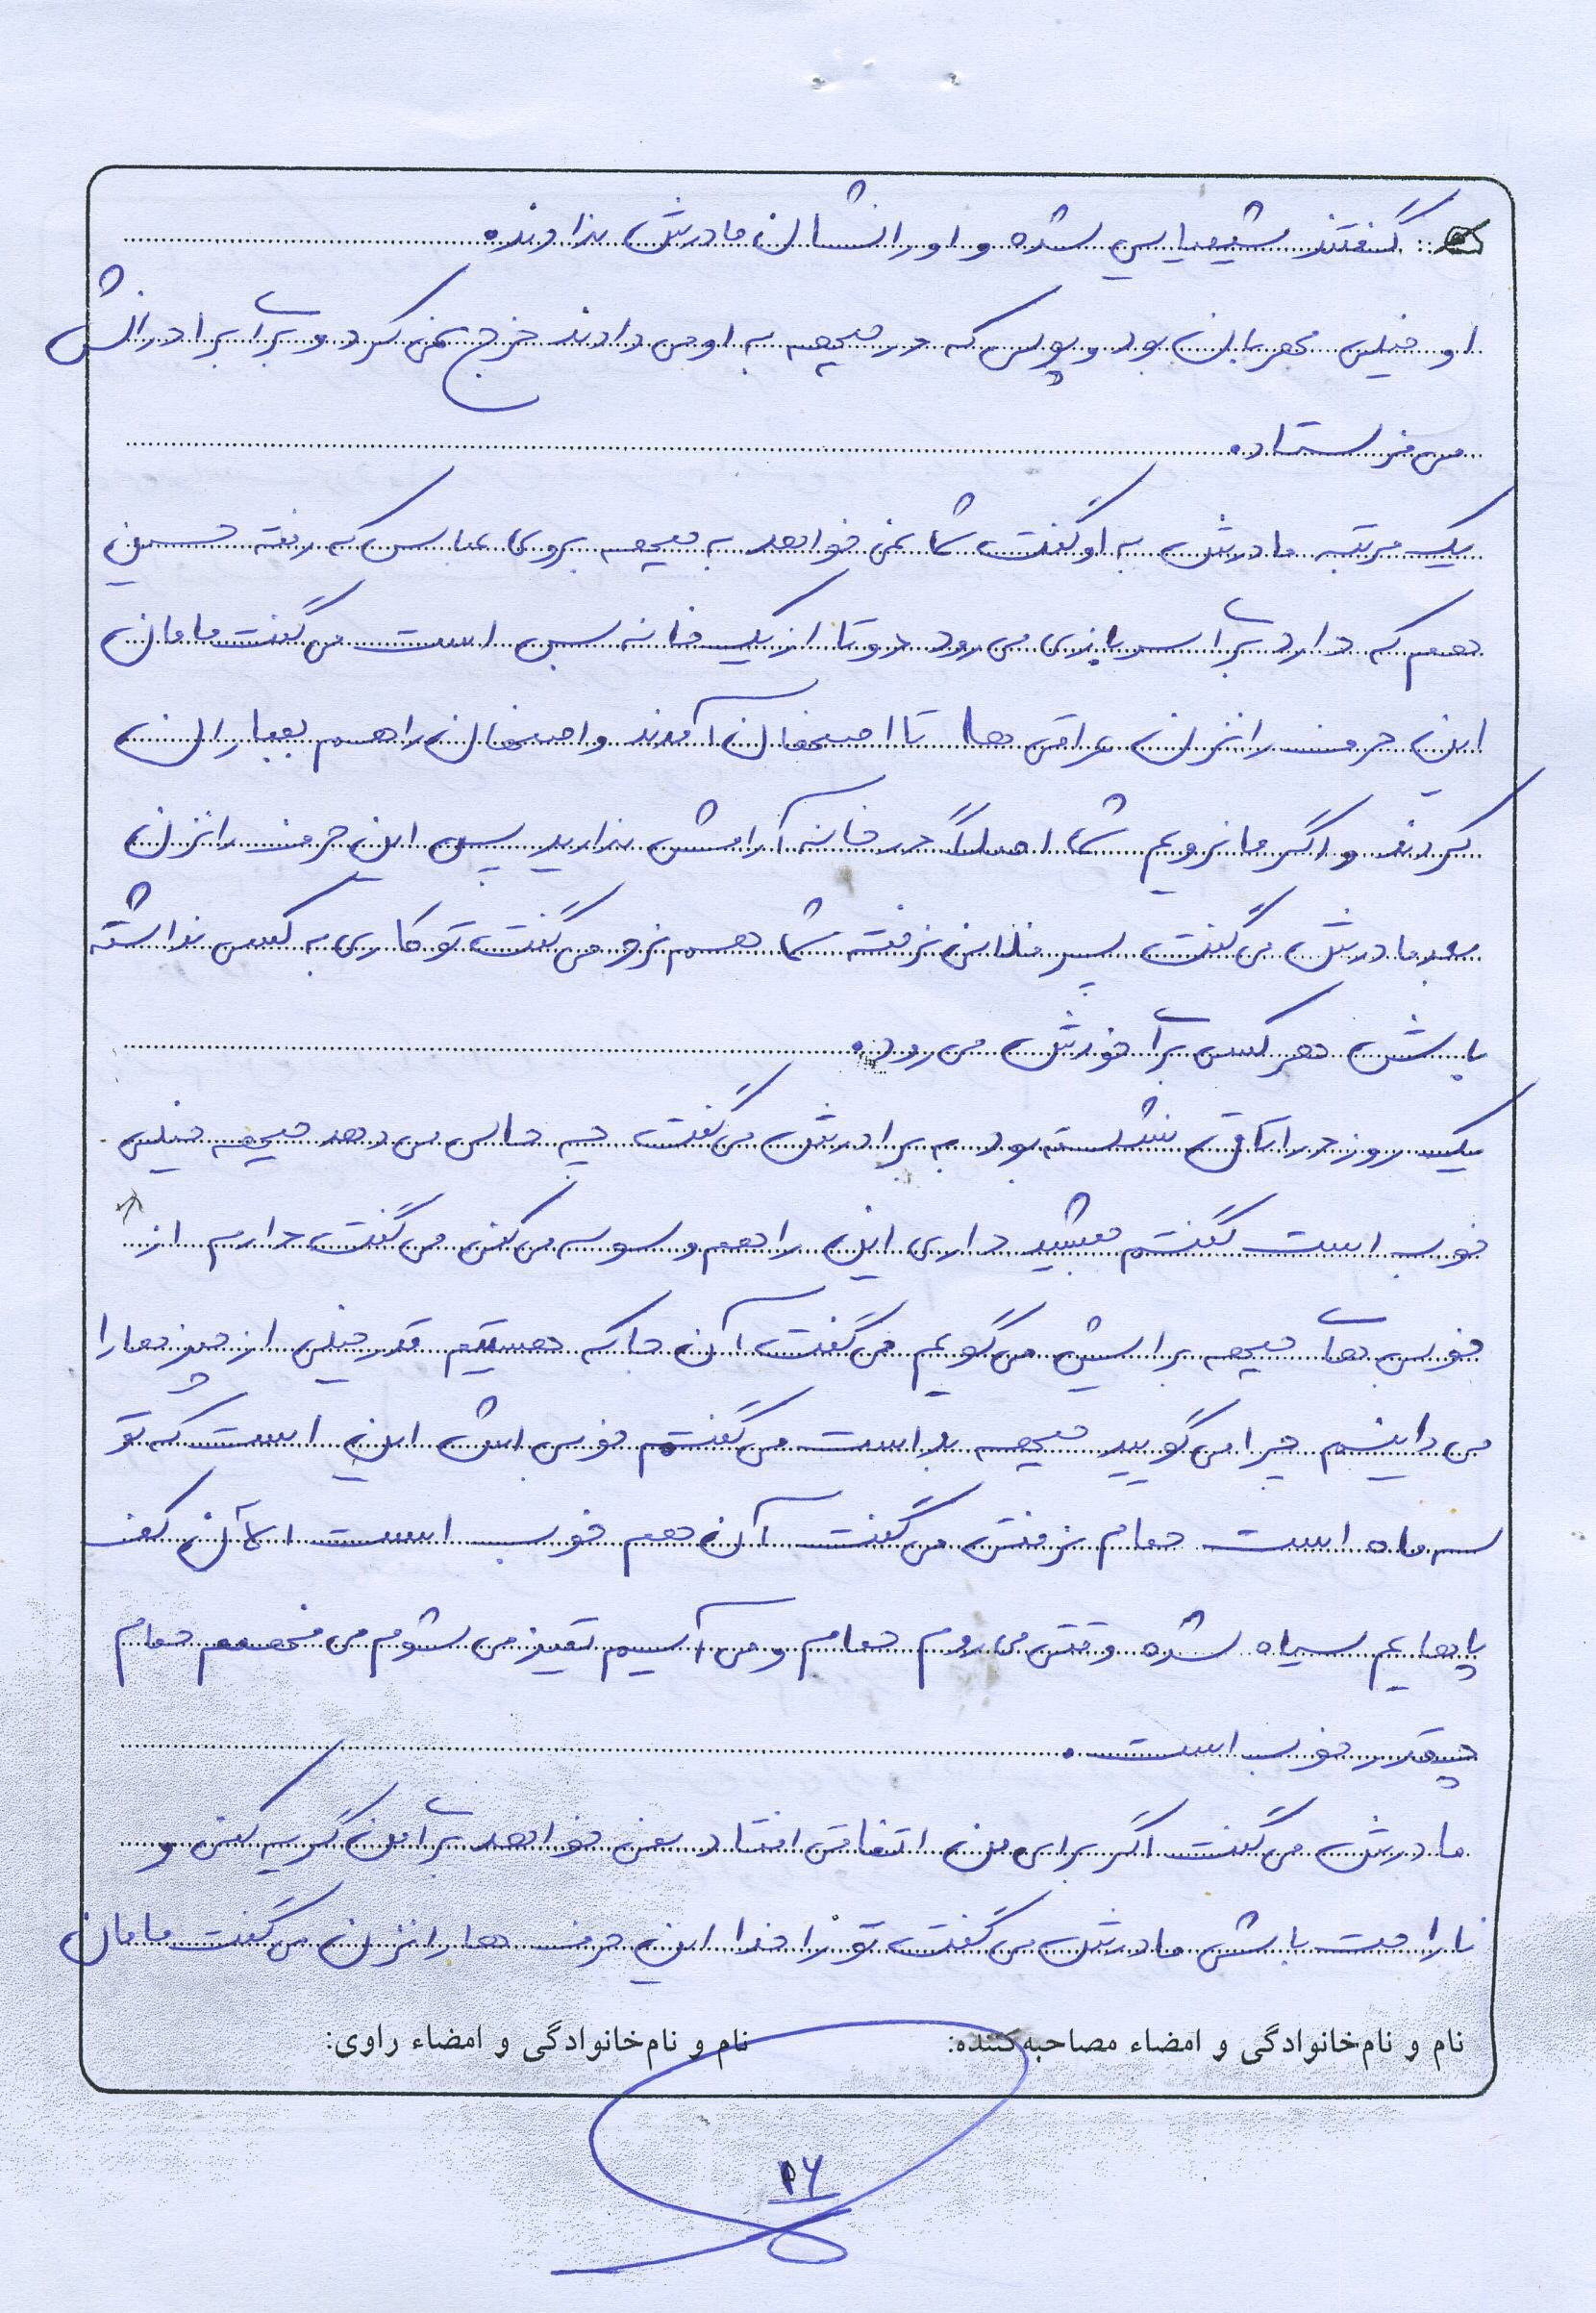 گفتند شیمیایی شده و او را نشان مادرش ندادند.
او خیلی مهربان بود و پولی که در جبهه به او می دادند خرج نمی کرد و برای برادرانش
می فرستاد.
یک مرتبه مادرش به او گفت شما نمی خواهد به جبهه بروی عباس که رفته حسین
هم که دارد برای سربازی می رود دو تا از یک خانه بس است می گفت مامان
این حرف را نزن عراقی ها تا اصفهان آمدند و اصفهان را هم بمباران
کردند و اگر ما نرویم شما اصلاً در خانه آرامش ندارید پس این حرف را نزن
بعد مادرش می گفت پسر فلانی نرفته شما هم نرو می گفت تو کاری به کسی نداشته
باش هر کس برای خودش می رود.
یک روز در اتاق نشسته بود به برادرش می گفت چه حالی می دهد جبهه خیلی
خوب است گفتم جمشید داری این را هم وسوسه می کنی می گفت دارم از
خوبی های جبهه برایش می گویم می گفت آن جا که هستیم قدر خیلی از چیزها را
می دانیم چرا می گویید جبهه بد است می گفتم خوبی اش این است که تو
سه ماه است حمام نرفتی می گفت آن هم خوب است الآن کف
پاهایم سیاه شده وقتی می روم حمام و می آییم تمیز می شوم می فهمم حمام
چقدر خوب است.
مادرش می گفت اگر برای من اتفاقی افتاد نمی خواهد برای من گریه کنی و
ناراحت باشی مادرش می گفت تو را خدا این حرف ها را نزن می گفت مامان
نام و نام‌خانوادگی و امضاء مصاحبه‌کننده: نام و نام‌خانوادگی و امضاء راوی: